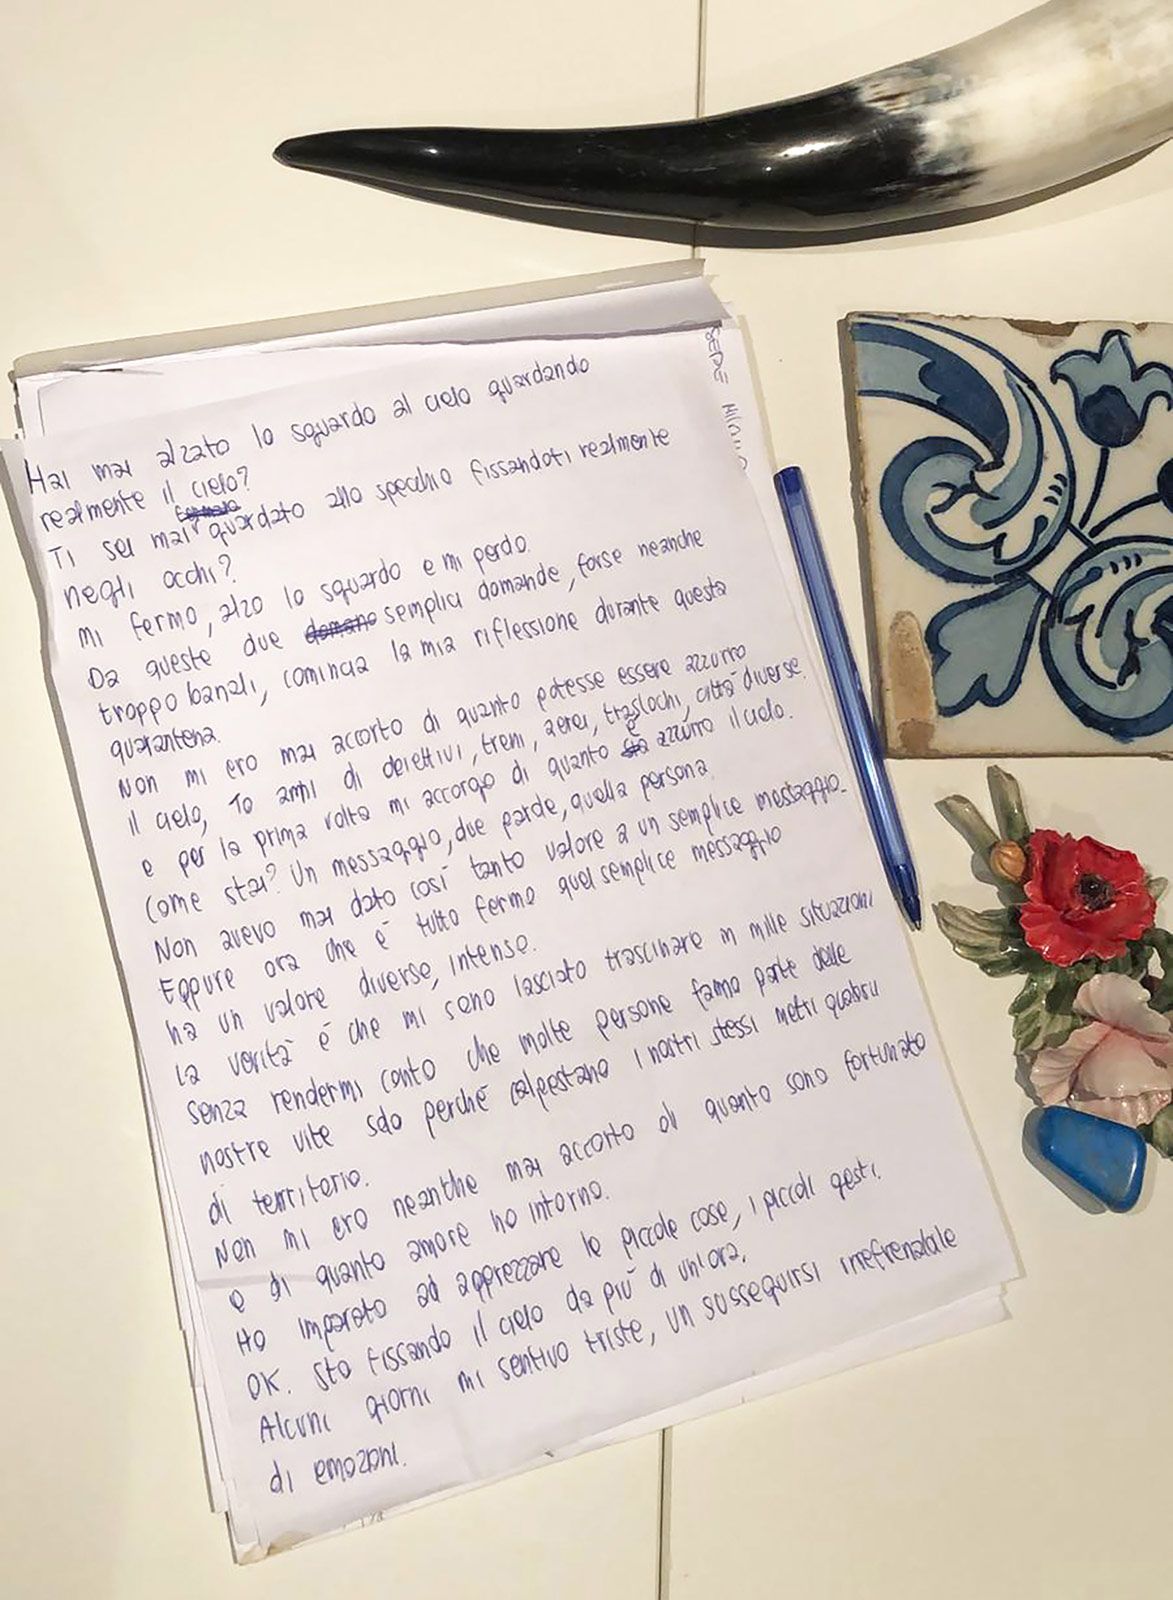 Hai mai alzato lo sguardo al cielo guardando
realmente il cielo?
Ti sei mai guardato allo specchio fissandoti realmente
negli occhi?
Mi fermo, alzo lo sguardo e mi perdo.
Da queste due semplici domande, forse neanche
troppo banali, comincia la mia riflessione durante questa
quarantena.
Non mi ero mai accorto di quanto potesse essere azzurro
il cielo, 10 anni di obiettivi, treni, aerei, traslochi, città diverse
e per la prima volta mi accorgo di quanto è azzurro il cielo.
Come stai? Un messaggio, due parole, quella persona.
Non avevo mai dato così tanto valore a un semplice messaggio.
Eppure ora che è tutto fermo quel semplice messaggio
ha un valore diverso, intenso.
La verità è che mi sono lasciato trascinare in mille situazioni
senza rendermi conto che molte persone fanno parte delle
nostre vite solo perché calpestano i nostri stessi metri quadri
di territorio.
Non mi ero neanche mai accorto di quanto sono fortunato
e di quanto amore ho intorno.
Ho imparato ad apprezzare le piccole cose, i piccoli gesti.
OK. Sto fissando il cielo da più di un'ora.
Alcuni giorni mi sentivo triste, un susseguirsi irrefrenabile
di emozioni.
SEDE